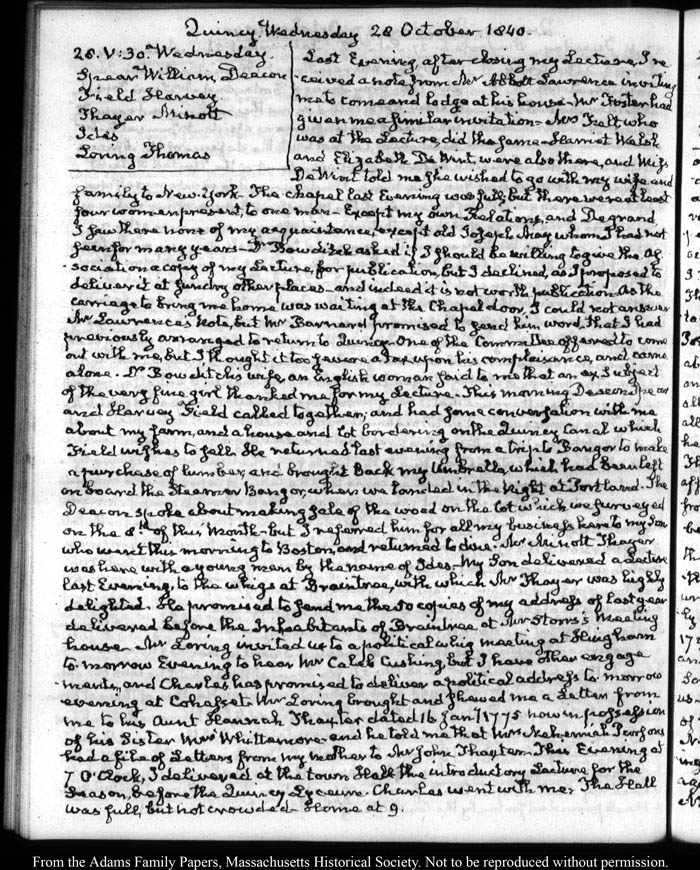 Quincy Wednesday 28 October 1840.
28. V:30. Wednesday.
Spear William, Deacon
Field Harvey
Thayer Minott
Ides
Loring Thomas
Last Evening after closing my Lecture, I re-
ceived a note from Mr Abbott Lawrence inviting
me to come and lodge at his house— Mr Foster had
given me a similar invitation— Mrs Felt who
was at the Lecture, did the same— Harriet Welsh
and Elizabeth De Wint, were also there, and Miss
De Wint told me she wished to go with my wife and
family to New-York— The chapel last Evening was full, but there were at least
four women present, to one man— Except my own Relations, and Degrand
I saw there none of my acquaintance, except old Joseph May whom I had not
seen for many years— Dr Bowditch asked if I should be willing to give the As-
sociation a copy of my Lecture, for publication, but I declined, as I proposed to
deliver it at sundry other places— and indeed it is not worth publication. As the
carriage to bring me home was waiting at the Chapel door, I could not answer
Mr Lawrence's Note, but Mr Barnard promised to send him word, that I had
previously arranged to return to Quincy. One of the Committee offered to come
out with me, but I thought it too severe a tax upon his complaisance, and came
alone. Dr Bowditch's wife, an English woman said to me that an ex subject
of the very fine girl thanked me for my Lecture. This morning Deacon Spear
and Harvey Field called together, and had some conversation with me
about my farm, and a house and lot bordering on the Quincy Canal which
Field wishes to sell. He returned last evening from a trip to Bangor to make
a purchase of lumber, and brought back my Umbrella, which had been left
on board the Steamer Bangor, when we landed in the Night at Portland. The
Deacon spoke about making sale of the wood on the lot which we surveyed
on the 8th of this Month— but I referred him for all my business here to my Son
who went this morning to Boston, and returned to dine. Mr Minott Thayer
was here with a young man by the name of Ides— My Son delivered a Lecture
last Evening, to the whigs at Braintree, with which Mr Thayer was highly
delighted. He promised to send me the 50 copies of my address of last year
delivered before the Inhabitants of Braintree at Mr Storrs's Meeting
house— Mr Loring invited us to a political whig meeting at Hingham
to-morrow Evening to hear Mr Caleb Cushing, but I have other engage-
ments, and Charles has promised to deliver a political address to-morrow
evening at Cohasset. Mr Loring brought and shewed me a Letter from
me to his Aunt Hannah Thaxter dated 16 Jany 1775 now in possession
of his Sister Mrs Whittemore— and he told me that Mrs Nehemiah Parsons
had a file of Letters from my mother to Mr John Thaxter. This Evening at
7 O'Clock, I delivered at the town Hall the introductory Lecture for the
Season, before the Quincy Lyceum. Charles went with me. The Hall
was full, but not crowded— Home at 9.
From the Adams Family Papers, Massachusetts Historical Society. Not to be reproduced without permission.